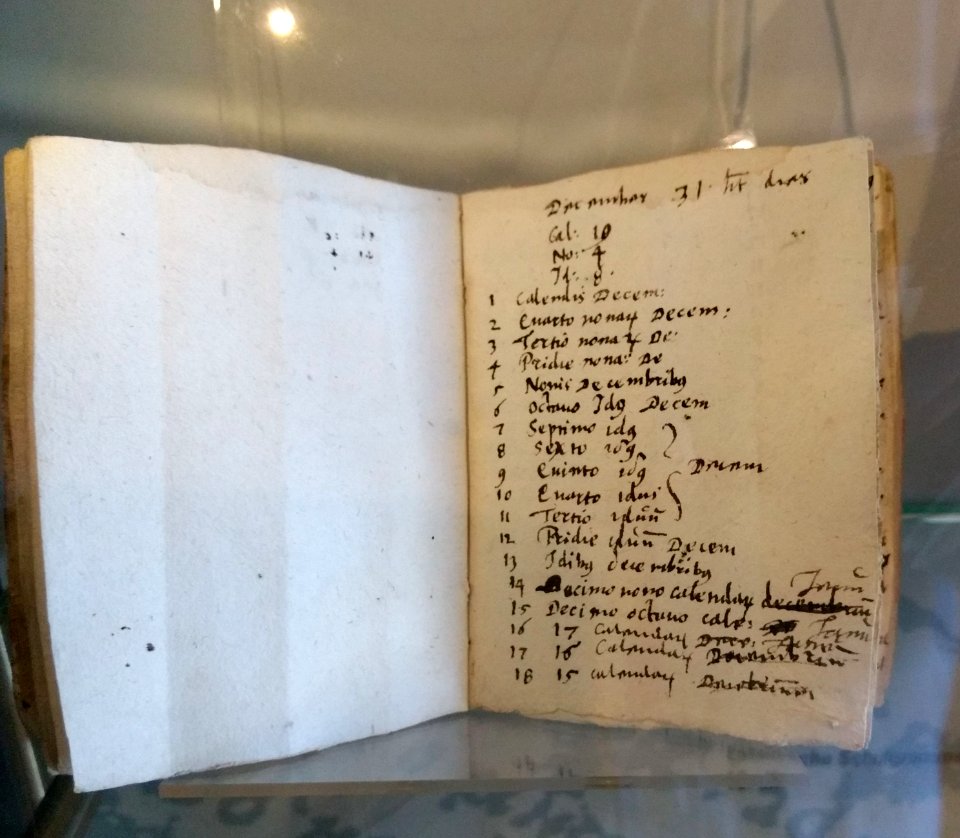 December 31 ht dies
Cal: 10
No: 4
Id: 8.
1 Calendis Decem:
2 Quarto nonaꝝ Decem:
3 Tertio nonaꝝ De:
4 Pridie nona: De
5 Nonis Decembribꝫ
6 octauo Idꝫ Decem
7 Septimo idꝫ
8 Sexto idꝫ
9 Quinto idꝫ Decem
10 Quarto idui
11 Tertio iduū
12 Pridie iduū Decem
13 Idibꝫ decembribꝫ
14 Decimo nono calendaꝝ decembriū
15 Decimo octauo cale:
16 17 Calendaꝝ Dece:
17 16 Calendaꝝ
18 15 calendaꝝ